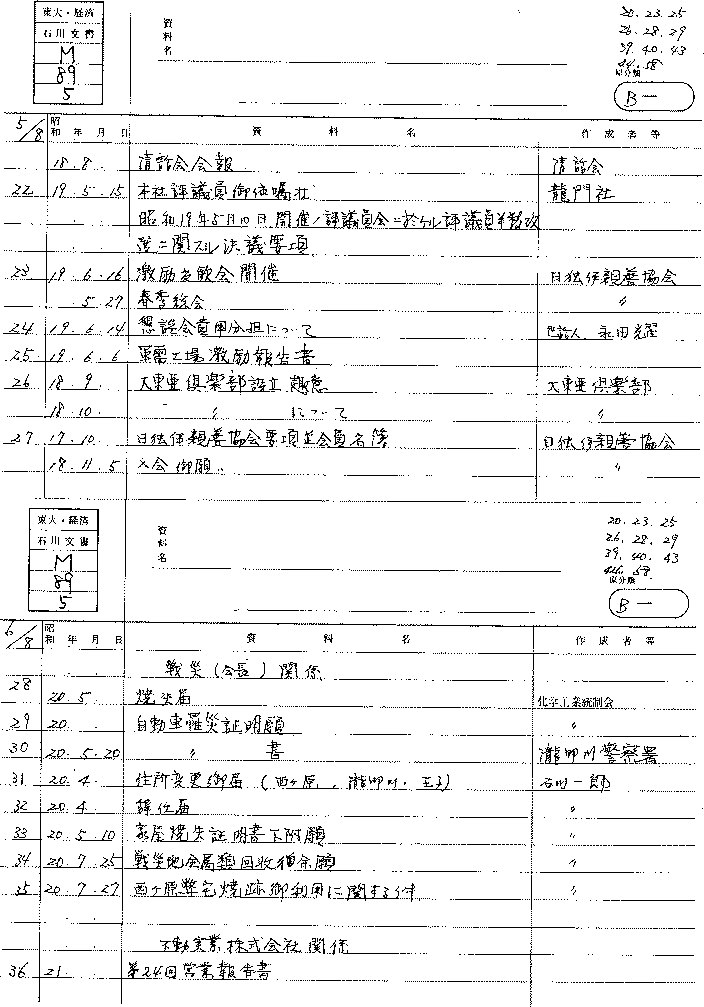 東大・経済
石川文書
M
89
5
資料名
20.23.25
26.28.29
39.40.43
44.58
原分類
B一
5/8 昭和 年 月 日 資料名 作成者等
18.8. 清話会会報 清話会
22 19.5.15 本社評議員御依嘱状 龍門社
昭和19年5月10日開催ノ評議員会ニ於ケル評議員半数改
選ニ関スル決議要項
23 19.6.16 激励 会開催 日独伊親善協会
5.27 春季総会 〃
24 19.6.14 懇談会費用分担について 世話人 永田
25 19.6.6 軍需工場激励報告書
26 18.9. 大東亜倶楽部設立趣意 大東亜倶楽部
18.10. 〃 について 〃
27 17.10. 日独伊親善協会要項並会員名簿 日独伊親善協会
18.11.5 入会御願 〃
東大・経済
石川文書
M
89
5
資料名
20.23.25
26.28.29
39.40.43
44.58
原分類
B一
6/8 昭和 年 月 日 資料名 作成者等
戦災(会長)関係
28 20.5. 焼失届 化学工業統制会
29 20. 自動車罹災証明願 〃
30 20.5.20 〃 書 瀧野川警察署
31 20.4. 住所変更御届(西ヶ原、瀧野川・王子) 石川一郎
32 20.4. 辞任届 〃
33 20.5.10 家屋焼失証明書下附願 〃
34 20.7.25 戦災地金属類回収 願 〃
35 20.7.27 西ヶ原弊宅焼跡御利用に関する件 〃
不動実業株式会社関係
36 21. 第24回営業報告書